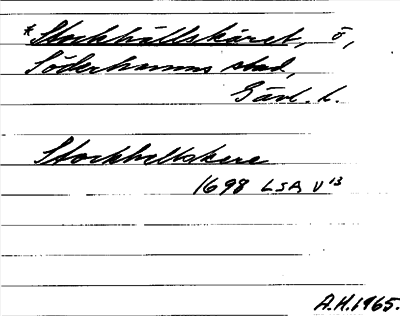 *Stockhällskäret, ö,
Söderhamns stad,
Gävl. l.
Stockhellskere
1698 LSA V 13
A.H. 1965.